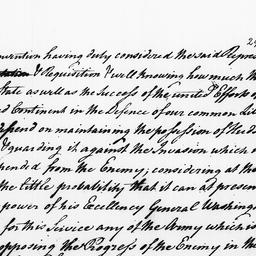 nvention having duly considered the said Repres
& Requisition & well Knowing how much the
tate as well as the Success of the united Efforts o
Continent in the Defence of our common Lib
epend on maintaining the possession of the
& guarding it against the Invasion which
hended from the Enemy; considering at th
the little probability that it can at presen
power of his Excellency General Washing
for this Service any of the Army which is
opposing the Progress of the Enemy in the